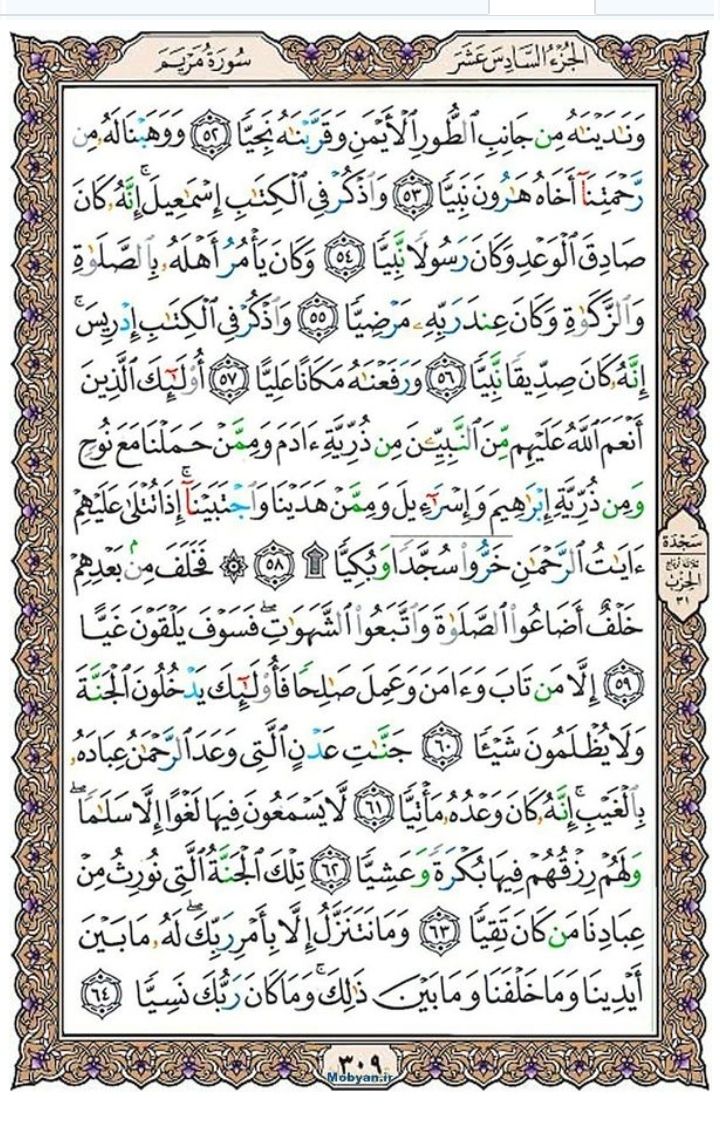 الجُزْءُ السَّادِسَ عَشَرَ
سُورَةُ مَرْيَمَ
وَنَٰدَيۡنَٰهُ مِن جَانِبِ ٱلطُّورِ ٱلۡأَيۡمَنِ وَقَرَّبۡنَٰهُ نَجِيّٗا ٥٢ وَوَهَبۡنَا لَهُۥ مِن
رَّحۡمَتِنَآ أَخَاهُ هَٰرُونَ نَبِيّٗا ٥٣ وَٱذۡكُرۡ فِي ٱلۡكِتَٰبِ إِسۡمَٰعِيلَۚ إِنَّهُۥ كَانَ
صَادِقَ ٱلۡوَعۡدِ وَكَانَ رَسُولٗا نَّبِيّٗا ٥٤ وَكَانَ يَأۡمُرُ أَهۡلَهُۥ بِٱلصَّلَوٰةِ
وَٱلزَّكَوٰةِ وَكَانَ عِندَ رَبِّهِۦ مَرۡضِيّٗا ٥٥ وَٱذۡكُرۡ فِي ٱلۡكِتَٰبِ إِدۡرِيسَۚ
إِنَّهُۥ كَانَ صِدِّيقٗا نَّبِيّٗا ٥٦ وَرَفَعۡنَٰهُ مَكَانًا عَلِيًّا ٥٧ أُوْلَٰٓئِكَ ٱلَّذِينَ
أَنۡعَمَ ٱللَّهُ عَلَيۡهِم مِّنَ ٱلنَّبِيِّـۧنَ مِن ذُرِّيَّةِ ءَادَمَ وَمِمَّنۡ حَمَلۡنَا مَعَ نُوحٖ
وَمِن ذُرِّيَّةِ إِبۡرَٰهِيمَ وَإِسۡرَٰٓءِيلَ وَمِمَّنۡ هَدَيۡنَا وَٱجۡتَبَيۡنَآۚ إِذَا تُتۡلَىٰ عَلَيۡهِمۡ
ءَايَٰتُ ٱلرَّحۡمَٰنِ خَرُّواْۤ سُجَّدٗاۤ وَبُكِيّٗا ۩ ٥٨ ۞ فَخَلَفَ مِنۢ بَعۡدِهِمۡ
خَلۡفٌ أَضَاعُواْ ٱلصَّلَوٰةَ وَٱتَّبَعُواْ ٱلشَّهَوَٰتِۖ فَسَوۡفَ يَلۡقَوۡنَ غَيًّا
٥٩ إِلَّا مَن تَابَ وَءَامَنَ وَعَمِلَ صَٰلِحٗا فَأُوْلَٰٓئِكَ يَدۡخُلُونَ ٱلۡجَنَّةَ
وَلَا يُظۡلَمُونَ شَيۡـٔٗا ٦٠ جَنَّٰتِ عَدۡنٍ ٱلَّتِي وَعَدَ ٱلرَّحۡمَٰنُ عِبَادَهُۥ
بِٱلۡغَيۡبِۚ إِنَّهُۥ كَانَ وَعۡدُهُۥ مَأۡتِيّٗا ٦١ لَّا يَسۡمَعُونَ فِيهَا لَغۡوًا إِلَّا سَلَٰمٗاۖ
وَلَهُمۡ رِزۡقُهُمۡ فِيهَا بُكۡرَةٗ وَعَشِيّٗا ٦٢ تِلۡكَ ٱلۡجَنَّةُ ٱلَّتِي نُورِثُ مِنۡ
عِبَادِنَا مَن كَانَ تَقِيّٗا ٦٣ وَمَا نَتَنَزَّلُ إِلَّا بِأَمۡرِ رَبِّكَۖ لَهُۥ مَا بَيۡنَ
أَيۡدِينَا وَمَا خَلۡفَنَا وَمَا بَيۡنَ ذَٰلِكَۚ وَمَا كَانَ رَبُّكَ نَسِيّٗا ٦٤
سَجْدَة
ثلاثة أرباع
الحزب
٣١
٣٠٩
Mobyan.ir